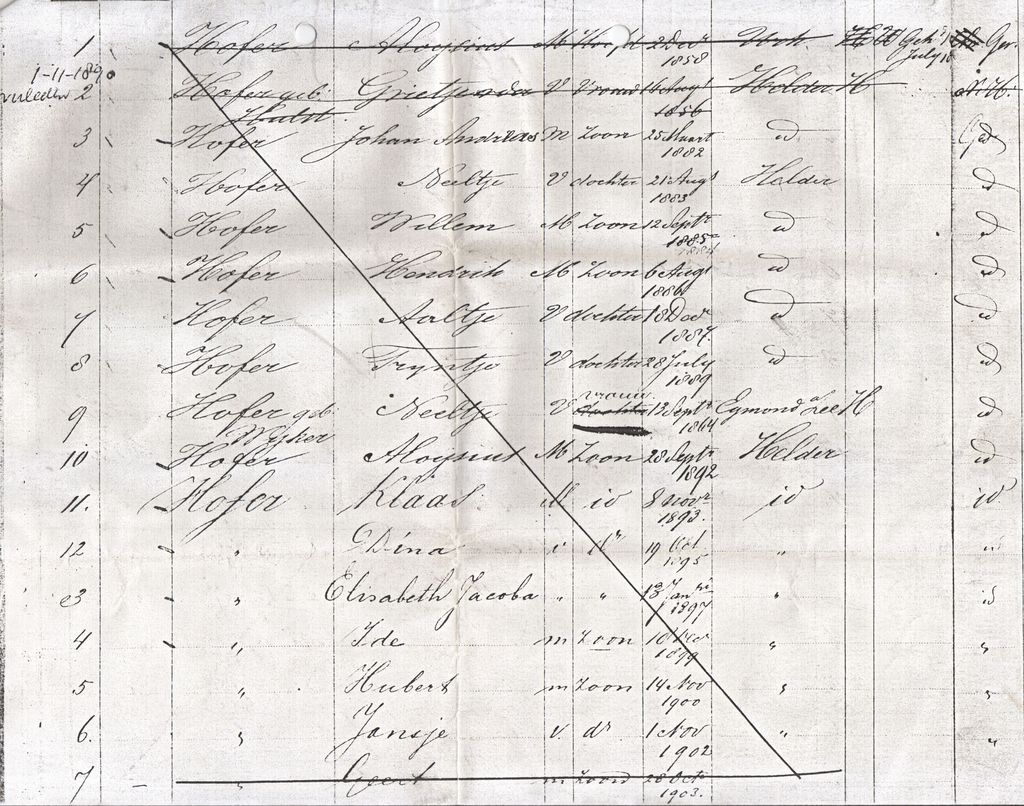 1 Hofer Aloysius M Hoofd 2 Dec 1858 Geh. July Ger.
1-11-189
2 Hofer geb. Hulst Grietje V Vrouw 16 Aug 1856 Helder H N.H.
3 Hofer Johan Andreas M Zoon 25 Maart 1882 id Ged
4 Hofer Neeltje V dochter 21 Augs 1883 Helder id
5 Hofer Willem M Zoon 12 Septr 1885 id id
1884
6 Hofer Hendrik M Zoon 6 Augs 1886 id id
7 Hofer Aaltje V dochter 18 Dec 1887 id id
8 Hofer Tryntje V dochter 28 July 1889 id id
9 Hofer geb. Wijker Neeltje V dochter vrouw 12 Septr 1864 Egmond a/ Zee H id
10 Hofer Aloysius M Zoon 28 Septr 1892 Helder id
11. Hofer Klaas M id 8 Novr 1893. id id
12 " Dina v dr 19 Oct 1895 " "
3 " Elisabeth Jacoba " " 13 Januari 1897 " id
4 " Ide m Zoon 10 1899 " "
5 " Hubert m Zoon 14 Nov 1900 " "
6. " Jansje v. dr 1 Nov 1902 " "
7 " Geert m Zoon 28 Octr 1903.